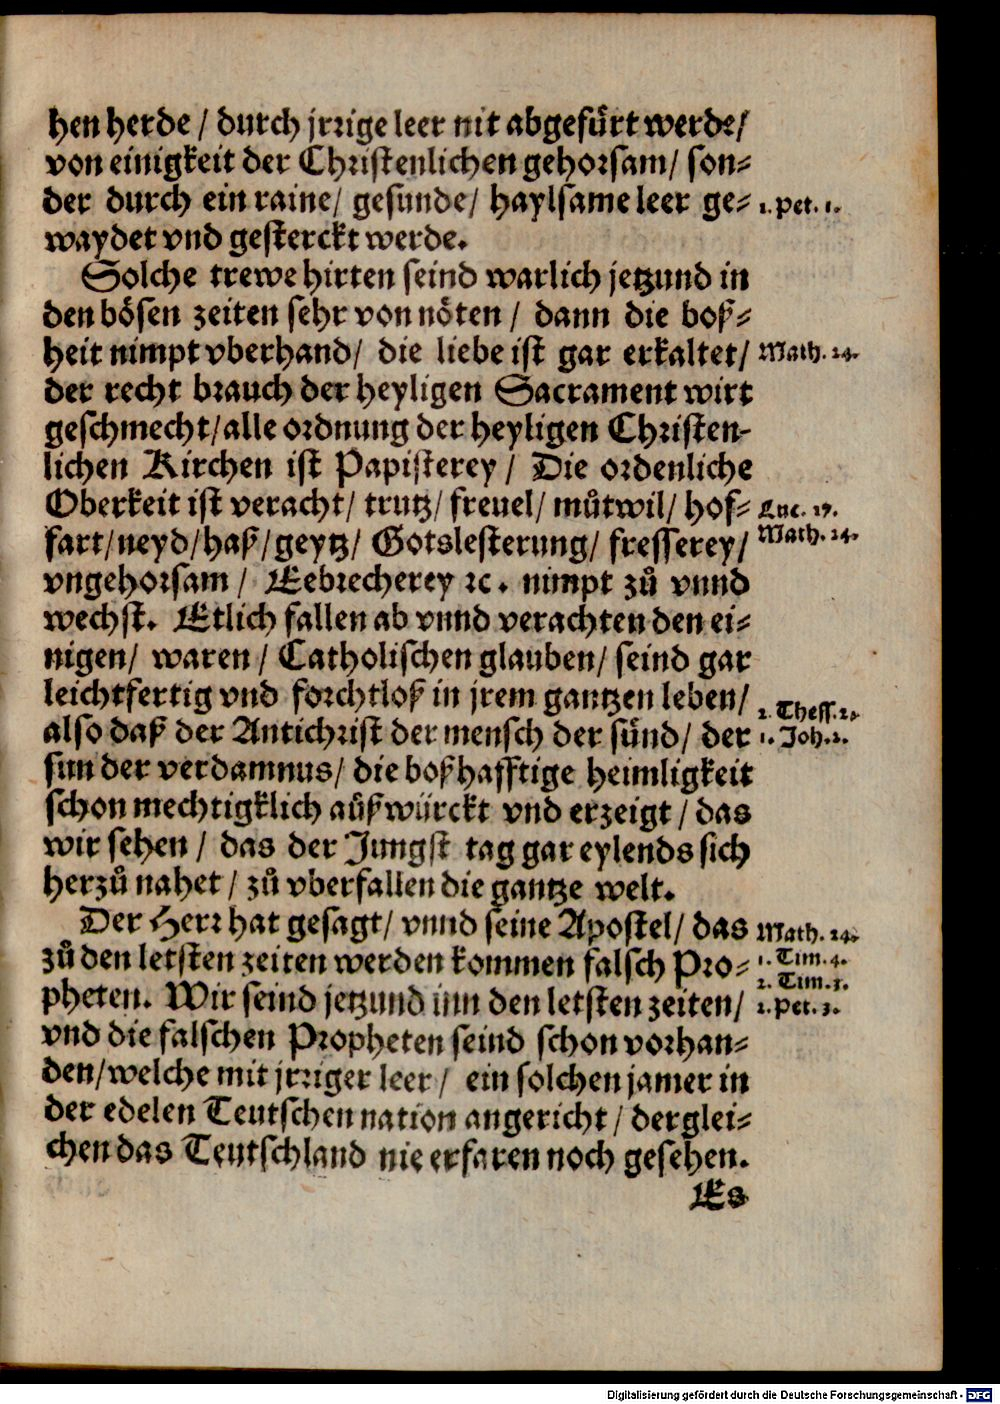 hen herde / durch jrrige leer nit abgefuͤrt werde/
von einigkeit der Christenlichen gehorsam/ son⸗
der durch ein raine/ gesunde/ haylsame leer ge⸗ 1. Pet. 1.
waydet vnd gesterckt werde.
Solche trewe hirten seind warlich jetzund in
den boͤsen zeiten sehr von noͤten / dann die boß⸗
heit nimpt vberhand/ die liebe ist gar erkaltet/ Math. 24.
der recht brauch der heyligen Sacrament wirt
geschmecht/ alle ordnung der heyligen Christen-
lichen Kirchen ist Papisterey / Die ordenliche
Oberkeit ist veracht/ trutz/ freuel/ muͦtwil/ hof⸗ Luc. 17.
fart/ neyd/ haß/ geytz/ Gotslesterung/ fresserey/ Math. 24.
vngehorsam / Eebrecherey ꝛc. nimpt zuͦ vnnd
wechst. Etlich fallen ab vnnd verachten den ei⸗
nigen/ waren / Catholischen glauben/ seind gar
leichtfertig vnd forchtloß in jrem gantzen leben/ 2. Thess. 2.
also daß der Antichrist der mensch der suͤnd/ der 1. Joh. 2.
sun der verdamnus/ die boßhafftige heimligkeit
schon mechtigklich auͤßwuͤrckt vnd erzeigt / das
wir sehen / das der Jungst tag gar eylends sich
herzuͦ nahet / zuͦ vberfallen die gantze welt.
Der Herr hat gesagt/ vnnd seine Apostel/ das Math. 24.
zuͦ den letsten zeiten werden kommen falsch Pro⸗ 1. Tim. 4.
2. Tim. 3.
pheten. Wir seind jetzund inn den letsten zeiten/ 2. Pet. 3.
vnd die falschen Propheten seind schon vorhan⸗
den/ welche mit jrriger leer / ein solchen jamer in
der edelen Teutschen nation angericht / derglei⸗
chen das Teutschland nie erfaren noch gesehen.
Es
Digitalisierung gefördert durch die Deutsche Forschungsgemeinschaft - DFG